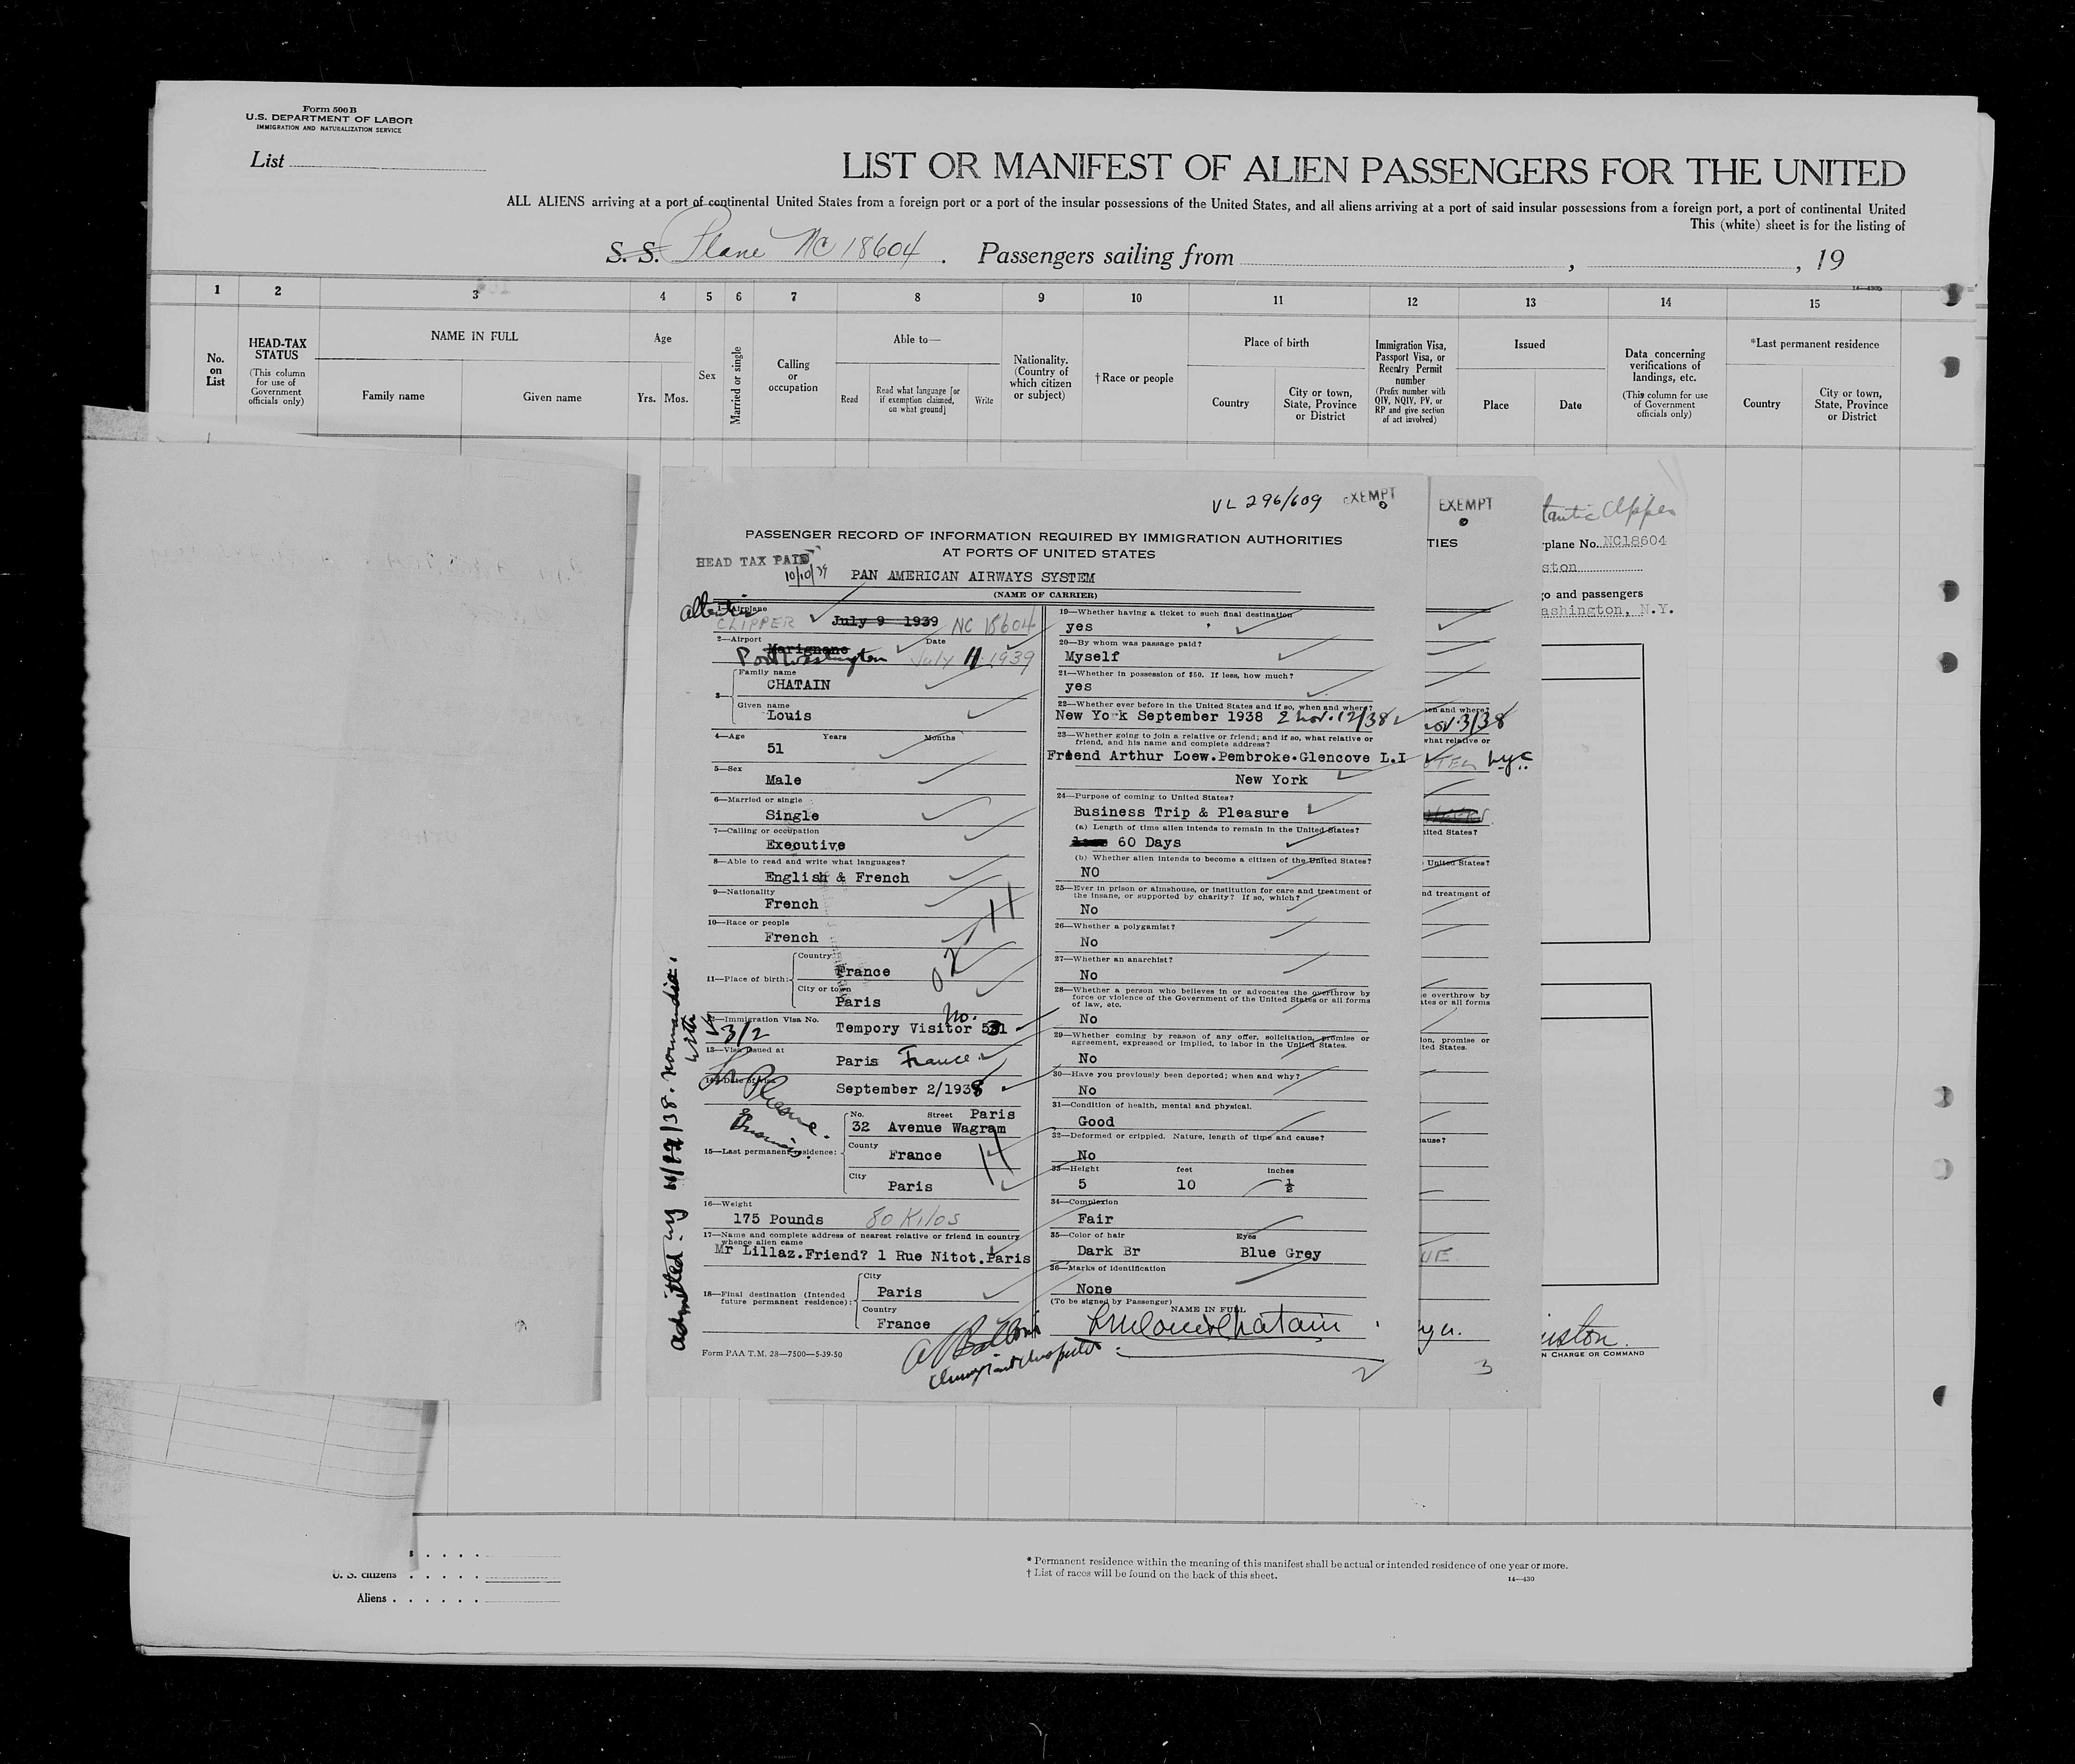 Form 500 B
U.S. DEPARTMENT OF LABOR
IMMIGRATION AND NATURALIZATION SERVICE
List
LIST OR MANIFEST OF ALIEN PASSENGERS FOR THE UNITED
ALL ALIENS arriving at a port of continental United States from a foreign port or a port of the insular possessions of the United States, and all aliens arriving at a port of said insular possessions from a foreign port, a port of continental United
This (white) sheet is for the listing of
S. S. Plane NC 18604. Passengers sailing from , , 19
1 2 3 4 5 6 7 8 9 10 11 12 13 14 15
No. on List
HEAD-TAX STATUS
(This column for use of Government officials only)
NAME IN FULL
Family name
Given name
Age
Yrs. Mos.
Sex
Married or single
Calling or occupation
Able to—
Read
Read what language [or if exemption claimed, on what ground]
Write
Nationality. (Country of which citizen or subject)
†Race or people
Place of birth
Country
City or town, State, Province or District
Immigration Visa, Passport Visa, or Reentry Permit number
(Prefix number with QIV, NQIV, PV, or RP and give section of act involved)
Issued
Place
Date
Data concerning verifications of landings, etc.
(This column for use of Government officials only)
*Last permanent residence
Country
City or town, State, Province or District
VL 296/609 EXEMPT
PASSENGER RECORD OF INFORMATION REQUIRED BY IMMIGRATION AUTHORITIES
AT PORTS OF UNITED STATES
HEAD TAX PAID
10/10/39
PAN AMERICAN AIRWAYS SYSTEM
(NAME OF CARRIER)
1—Airplane
CLIPPER July 9 1939 NC 18604
2—Airport Date
Marignane
Port Washington July 11 1939
3—
Family name
CHATAIN
Given name
Louis
4—Age Years Months
51
5—Sex
Male
6—Married or single
Single
7—Calling or occupation
Executive
8—Able to read and write what languages?
English & French
9—Nationality
French
10—Race or people
French
11—Place of birth:
Country
France
City or town
Paris
12—Immigration Visa No.
No.
3/2 Tempory Visitor
13—Visa issued at
Paris France
14—Date of visa
September 2/1938
Pleasure
15—Last permanent residence:
No. Street Paris
32 Avenue Wagram
County
France
City
Paris
16—Weight
175 Pounds 80 Kilos
17—Name and complete address of nearest relative or friend in country
whence alien came
Mr Lillaz.Friend? 1 Rue Nitot.Paris
18—Final destination (Intended
future permanent residence):
City
Paris
Country
France
Form PAA T.M. 28—7500—5-39-50
19—Whether having a ticket to such final destination
yes
20—By whom was passage paid?
Myself
21—Whether in possession of $50. If less, how much?
yes
22—Whether ever before in the United States and if so, when and where?
New York September 1938 2 Nov. 12/38
23—Whether going to join a relative or friend; and if so, what relative or
friend, and his name and complete address?
Friend Arthur Loew.Pembroke.Glencove L.I
New York
24—Purpose of coming to United States?
Business Trip & Pleasure
(a) Length of time alien intends to remain in the United States?
60 Days
(b) Whether alien intends to become a citizen of the United States?
NO
25—Ever in prison or almshouse, or institution for care and treatment of
the insane, or supported by charity? If so, which?
No
26—Whether a polygamist?
No
27—Whether an anarchist?
No
28—Whether a person who believes in or advocates the overthrow by
force or violence of the Government of the United States or all forms
of law, etc.
No
29—Whether coming by reason of any offer, solicitation, promise or
agreement, expressed or implied, to labor in the United States.
No
30—Have you previously been deported; when and why?
No
31—Condition of health, mental and physical.
Good
32—Deformed or crippled. Nature, length of time and cause?
No
33—Height feet inches
5 10 ½
34—Complexion
Fair
35—Color of hair Eyes
Dark Br Blue Grey
36—Marks of identification
None
(To be signed by Passenger)
NAME IN FULL
2
EXEMPT
TIES
en and where?
Nov. 3/38
what relative or
N.Y.C.
ited States?
United States?
nd treatment of
e overthrow by
ates or all forms
ion, promise or
ted States.
ause?
UE
3
tantic Clipper
rplane No. NC18604
ston
go and passengers
ashington, N.Y.
iston.
N CHARGE OR COMMAND
U. S. citizens
Aliens
* Permanent residence within the meaning of this manifest shall be actual or intended residence of one year or more.
† List of races will be found on the back of this sheet.
14—430